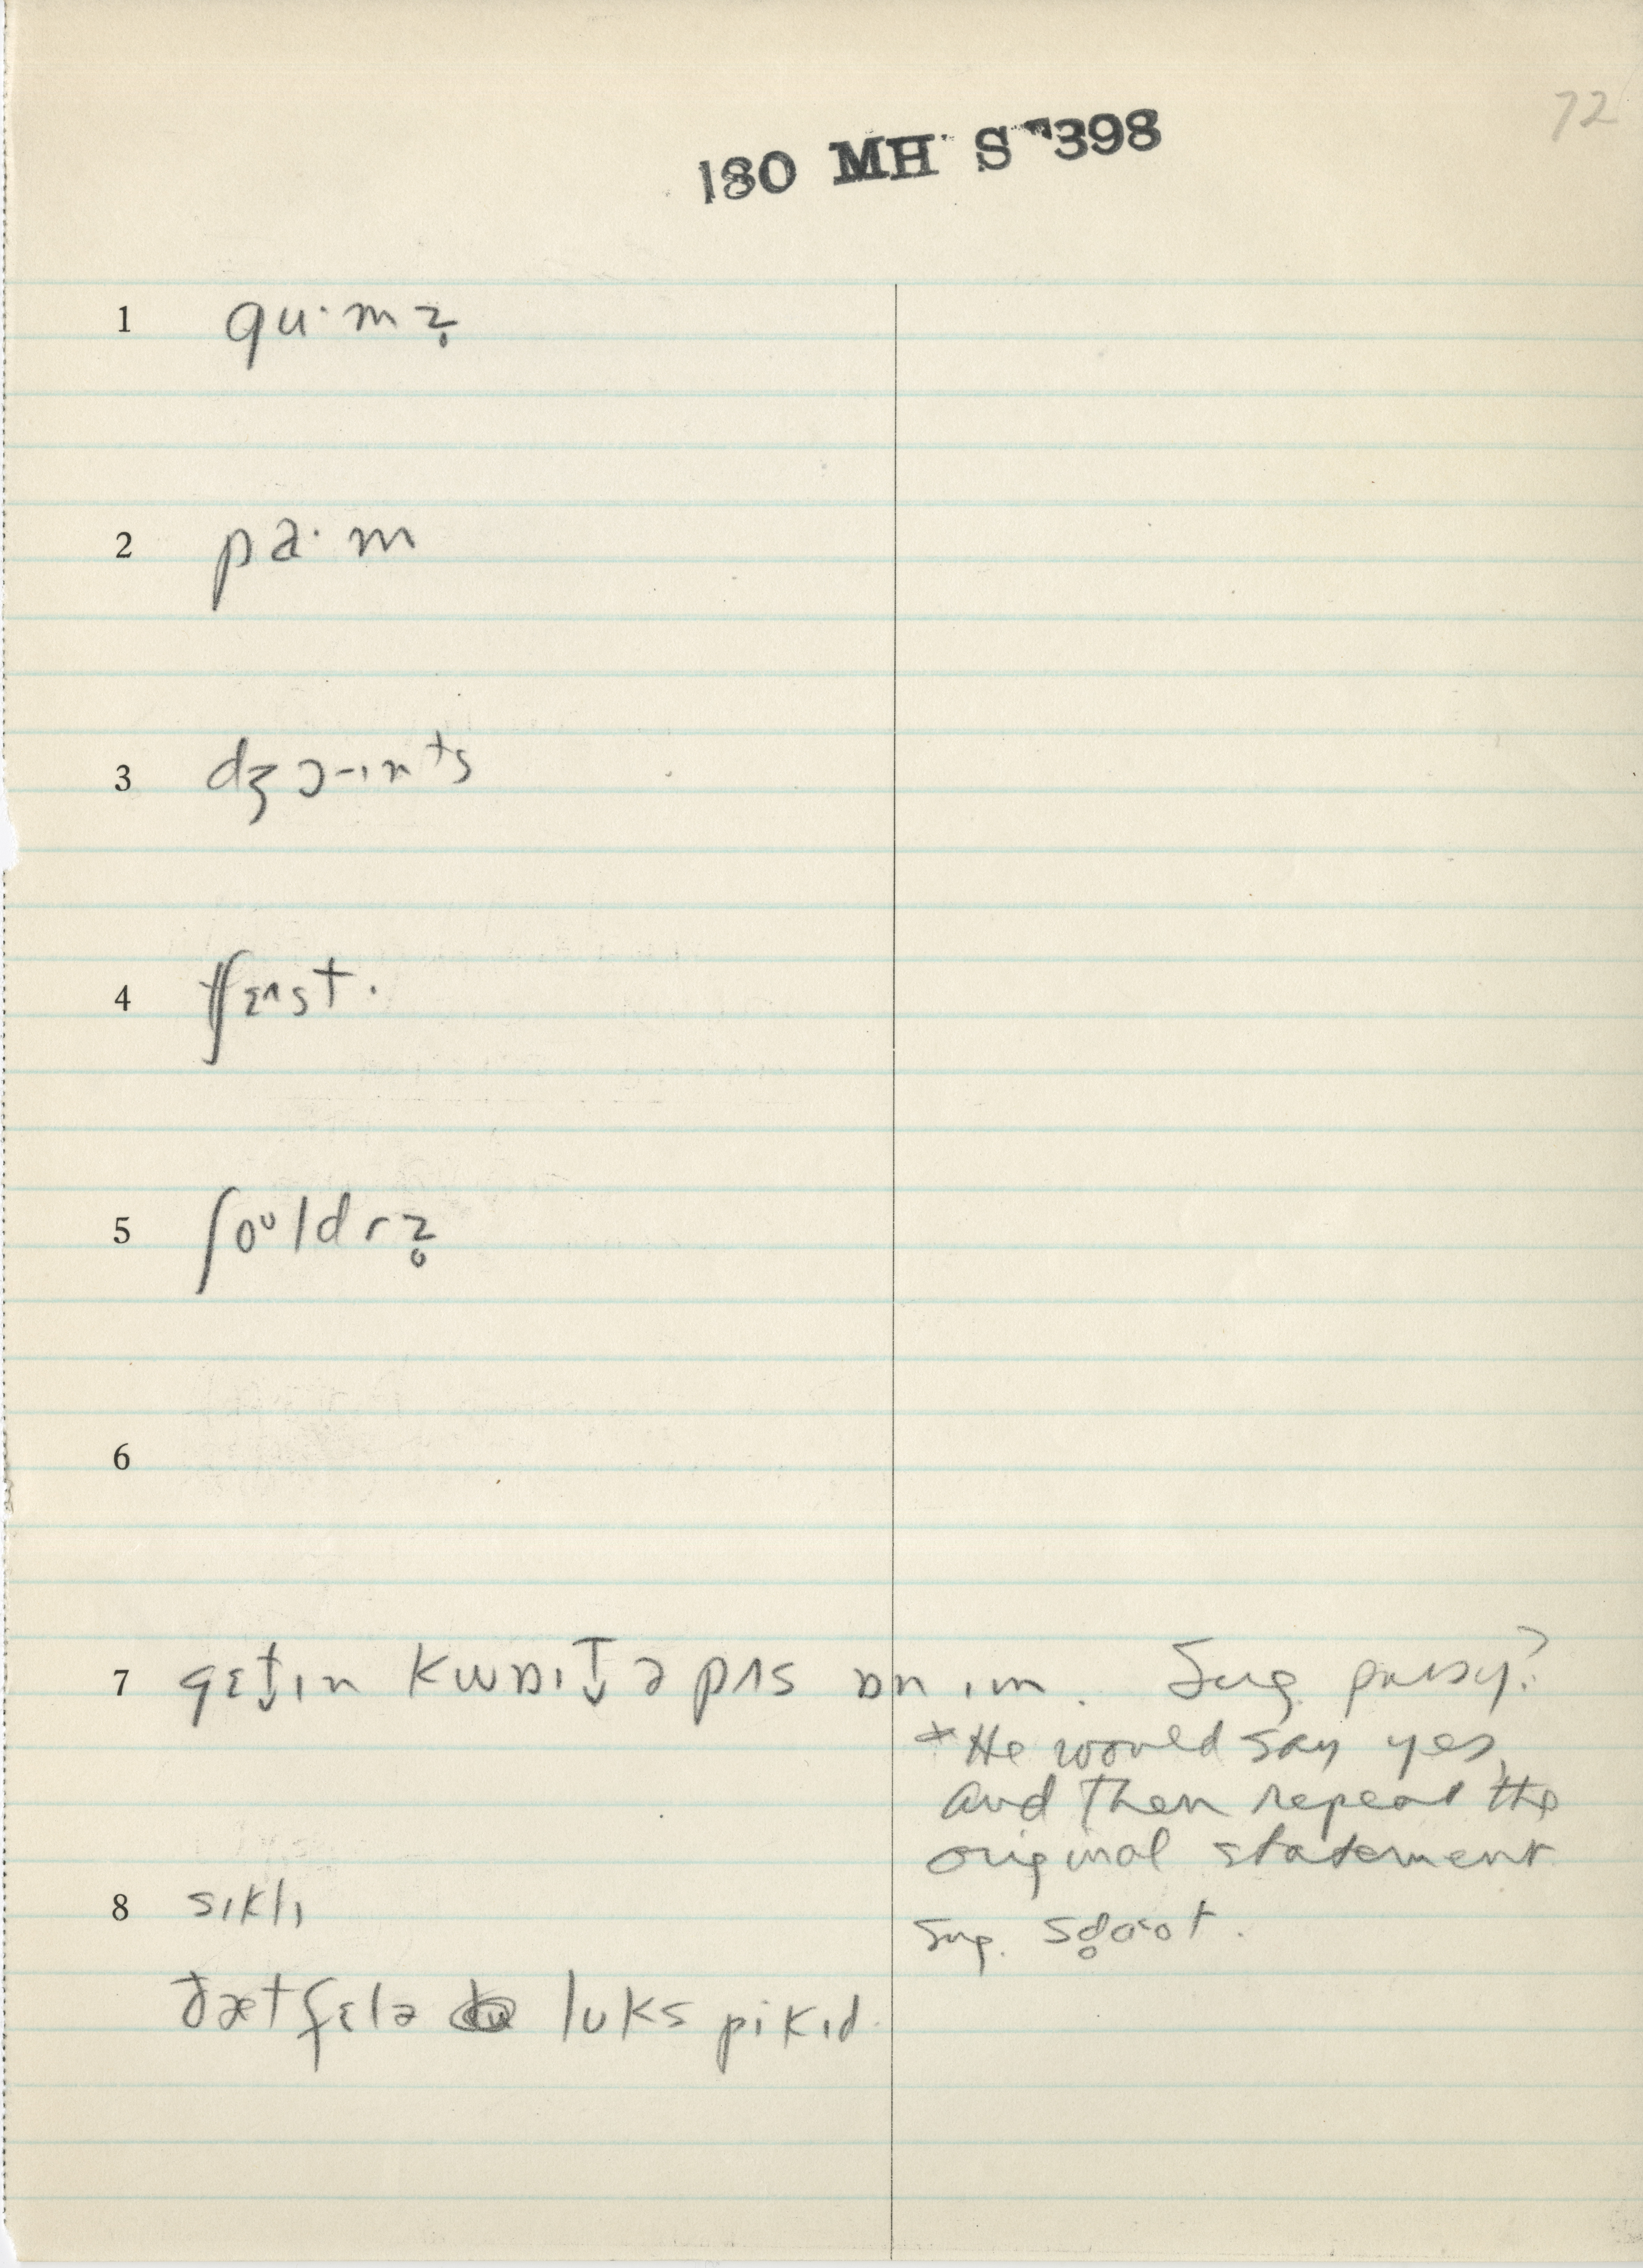 72
180 MH S 398
1 gu·mz̥
2 pa·m
3 dʒɔ-ɪnts
4 tʃɛʌst.
5 ʃoᶷldrz̥
6
7 gɛt̬ɪn kwɒɪt̬ ə pʌs ɒn ɪm. Sug. pussy?
*He would say yes,
and then repeat the
original statement
8 sɪklɪ
Sug.
ðæt fɛlə lʊks pikɪd.